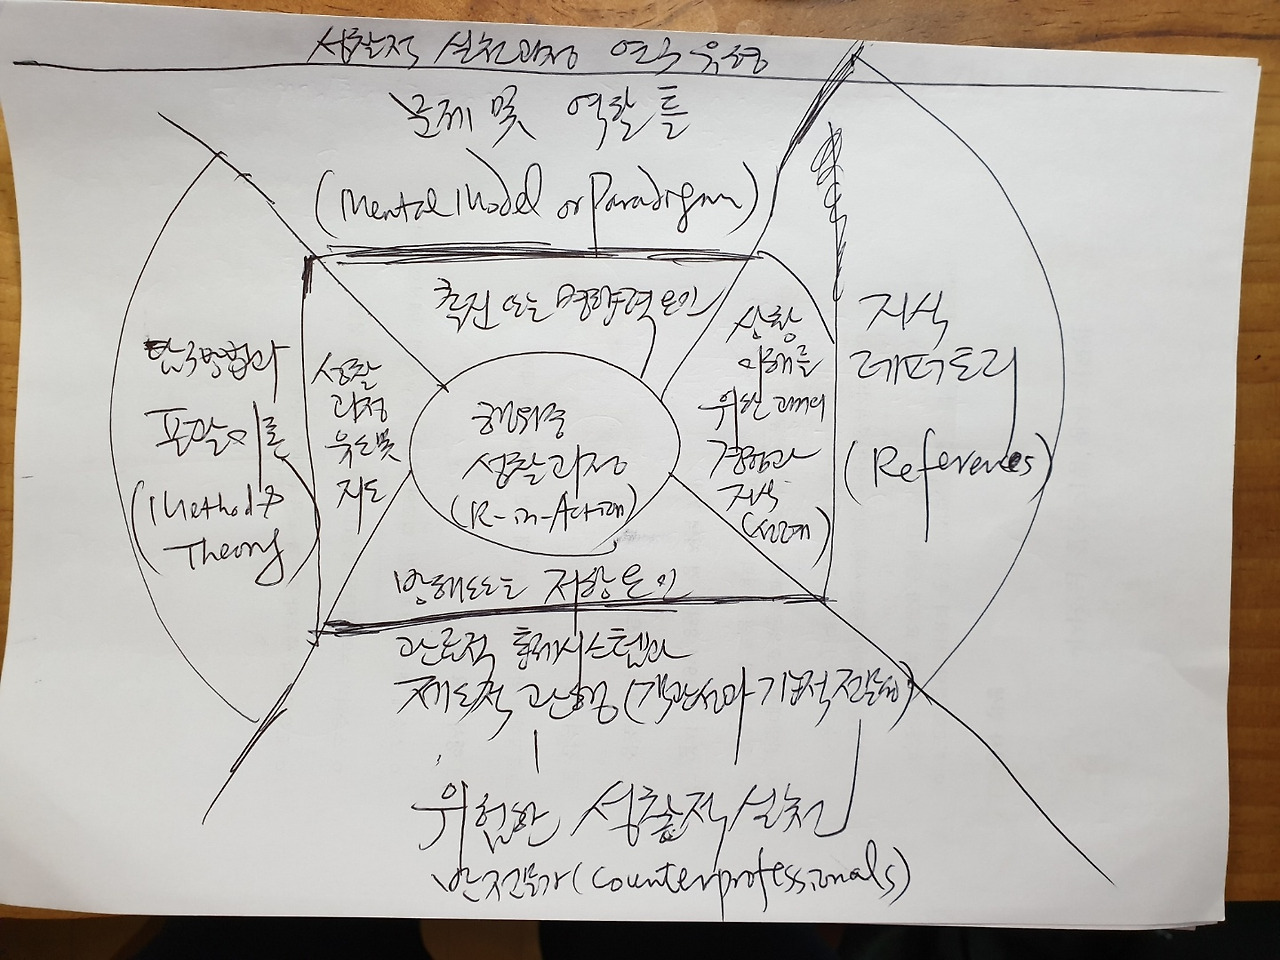 성찰적 실천과정 연구 유형
문제 및 역할 틀
(Mental Model or Paradigm)
촉진 또는 영향력 요인
행위중
성찰과정
(R-in-Action)
탐구방법과
포괄이론
(Method &
Theory)
성찰
과정
유도 및
지도
상황
이해를
위한 과거의
경험과
지식
지식
레퍼토리
(References)
방해 또는 저항요인
관료적 통제시스템과
제도적 관행 (객관성과 기술적 전문성)
위험한 성찰적 실천
반전문가 (Counterprofessionals)